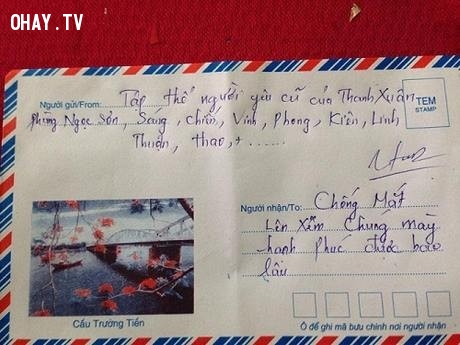 OHAY.TV
Người gửi/From: Tập thể người yêu cũ của Thanh Xuân
Phùng Ngọc Sơn, Sang, Chiến, Vinh, Phong, Kiên, Linh
Thuận, thao, + ......
TEM
STAMP
Người nhận/To: Chồng Mất
Lên Xem Chúng mày
hạnh phúc được bao
lâu
Cầu Trường Tiền
Ô để ghi mã bưu chính nơi người nhận
OHAY.TV